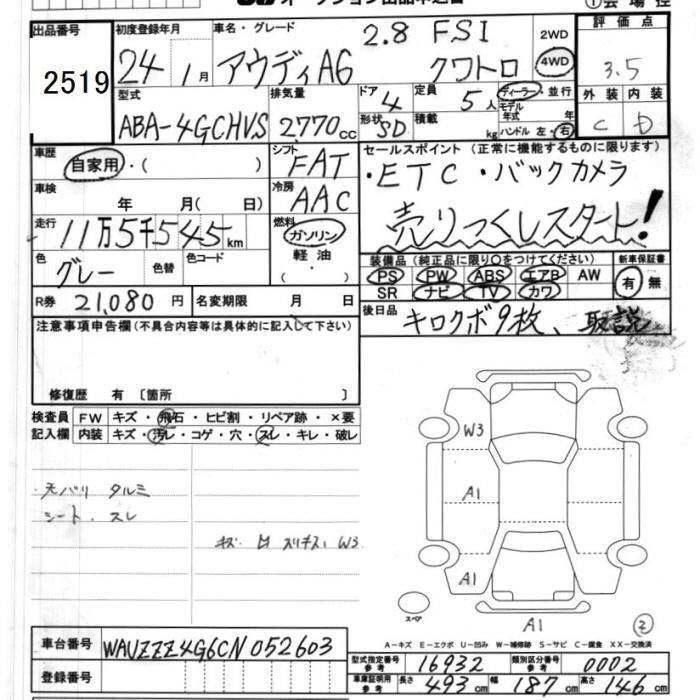 出品番号 2519
初度登録年月 24年 1月
車名・グレード アウディA6 2.8 FSI クワトロ
2WD 4WD
評価点 3.5
外装 内装
C D
型式 ABA-4GCHVS
排気量 2770cc
ドア 4
形状 SD
定員 5人
積載 kg
ディーラー・並行
モデル年式 年
ハンドル 左・右
車歴 自家用・( )
シフト FAT
車検 年 月( 日)
冷房 AAC
走行 11万5千545km
燃料 ガソリン 軽油 ・( )
色 グレー
色替
色コード
R券 21,080円
名変期限 月 日
セールスポイント(正常に機能するものに限ります)
・ETC ・バックカメラ
売りつくしスタート!
装備品(純正品に限り○をつけてください)
PS PW ABS エアB AW
SR ナビ TV カワ
新車保証書
有 無
後日品 キロクボ9枚、取説
注意事項申告欄(不具合内容等は具体的に記入して下さい)
修復歴 有 〔箇所 〕
検査員 FW キズ・飛石・ヒビ割・リペア跡・×要
記入欄 内装 キズ・汚レ・コゲ・穴・スレ・キレ・破レ
天バリ タルミ
シート、スレ
W3
A1
A1
A1
スペア
A-キズ E-エクボ U-凹み W-補修跡 S-サビ C-腐食 XX-交換済
車台番号 WAUZZZ4G6CN052603
登録番号
型式指定番号 参考 16932
類別区分番号 参考 0002
車庫証明用 参考 長さ 493cm 幅 187cm 高さ 146cm